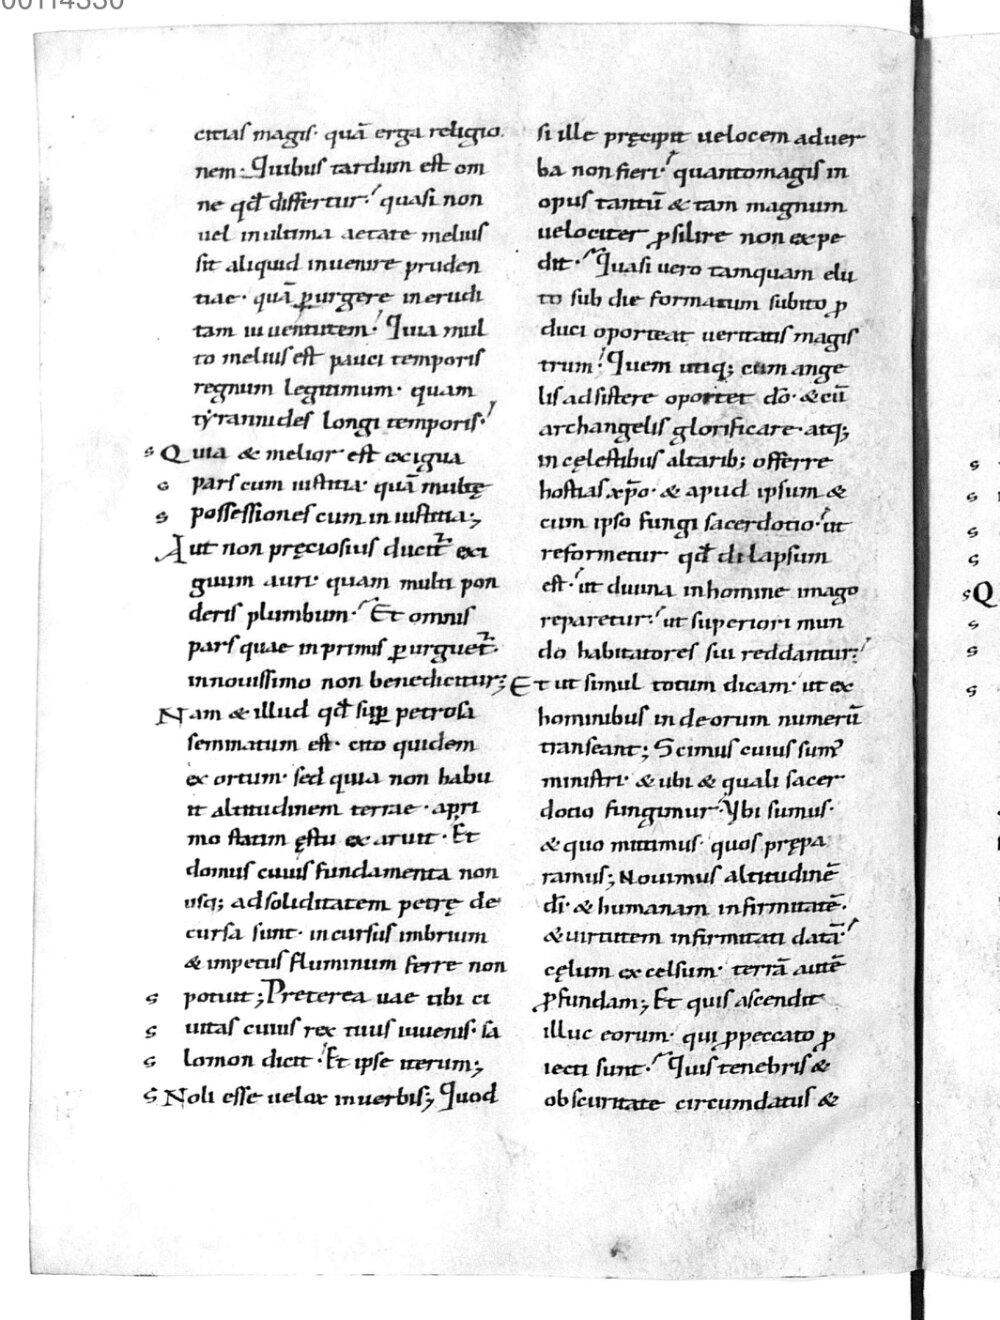 00114330
citias magis· quā erga religio
nem· Quibus tardum est om
ne qđ differtur· quasi non
uel in ultima aetate melius
sit aliquid inuenire pruden
tiae· quā purgere in erudi
tam iuuentutem· Quia mul
to melius est pauci temporis
regnum legitimum· quam
tyrannides longi temporis·
s Quia & melior est exigua
s pars cum iustitia· quā multę
s possessiones cum iniustitia;
Aut non pręciosius ducit exi
guum auri· quam multi pon
deris plumbum· Et omnis
pars quae in primis purguet·
in nouissimo non benedicitur;
Nam & illud qđ sup petrosa
seminatum est· cito quidem
exortum· sed quia non habu
it altitudinem terrae· apri
mo statim ęstu exaruit· Et
domus cuius fundamenta non
usq; ad soliditatem petrę de
cursa sunt· incursus imbrium
& impetus fluminum ferre non
s potuit; Preterea uae tibi ci
s uitas cuius rex tuus iuuenis· sa
s lomon dicit· Et ipse iterum;
s Noli esse uelox in uerbis; Quod
si ille pręcipit uelocem ad uer
ba non fieri· quanto magis in
opus tantū & tam magnum
uelociter ꝓsilire non expe
dit· Quasi uero tamquam e lu
to sub die formatum subito ꝓ
duci oporteat ueritatis magis
trum· Quem utiq; cum ange
lis adsistere oportet dō· & cū
archangelis glorificare· atq;
in cęlestibus altarib; offerre
hostias xp̄o· & apud ipsum &
cum ipso fungi sacerdotio· ut
reformetur qđ dilapsum
est· ut diuina in homine imago
reparetur· ut superiori mun
do habitatores sui reddantur·
Et ut simul totum dicam· ut ex
hominibus in deorum numerū
transeant; Scimus cuius sum
ministri· & ubi & quali sacer
dotio fungimur· Vbi sumus·
& quo mittimus· quos prępa
ramus; Nouimus altitudinē
dī· & humanam infirmitatē·
& uirtutem infirmitati datā·
cęlum excelsum· terrā autē
ꝓfundam; Et quis ascendit
illuc eorum· qui ꝓ peccato ꝓ
iecti sunt· Quis tenebris &
obscuritate circumdatus &
s
s
s
s
sQ
s
s
s